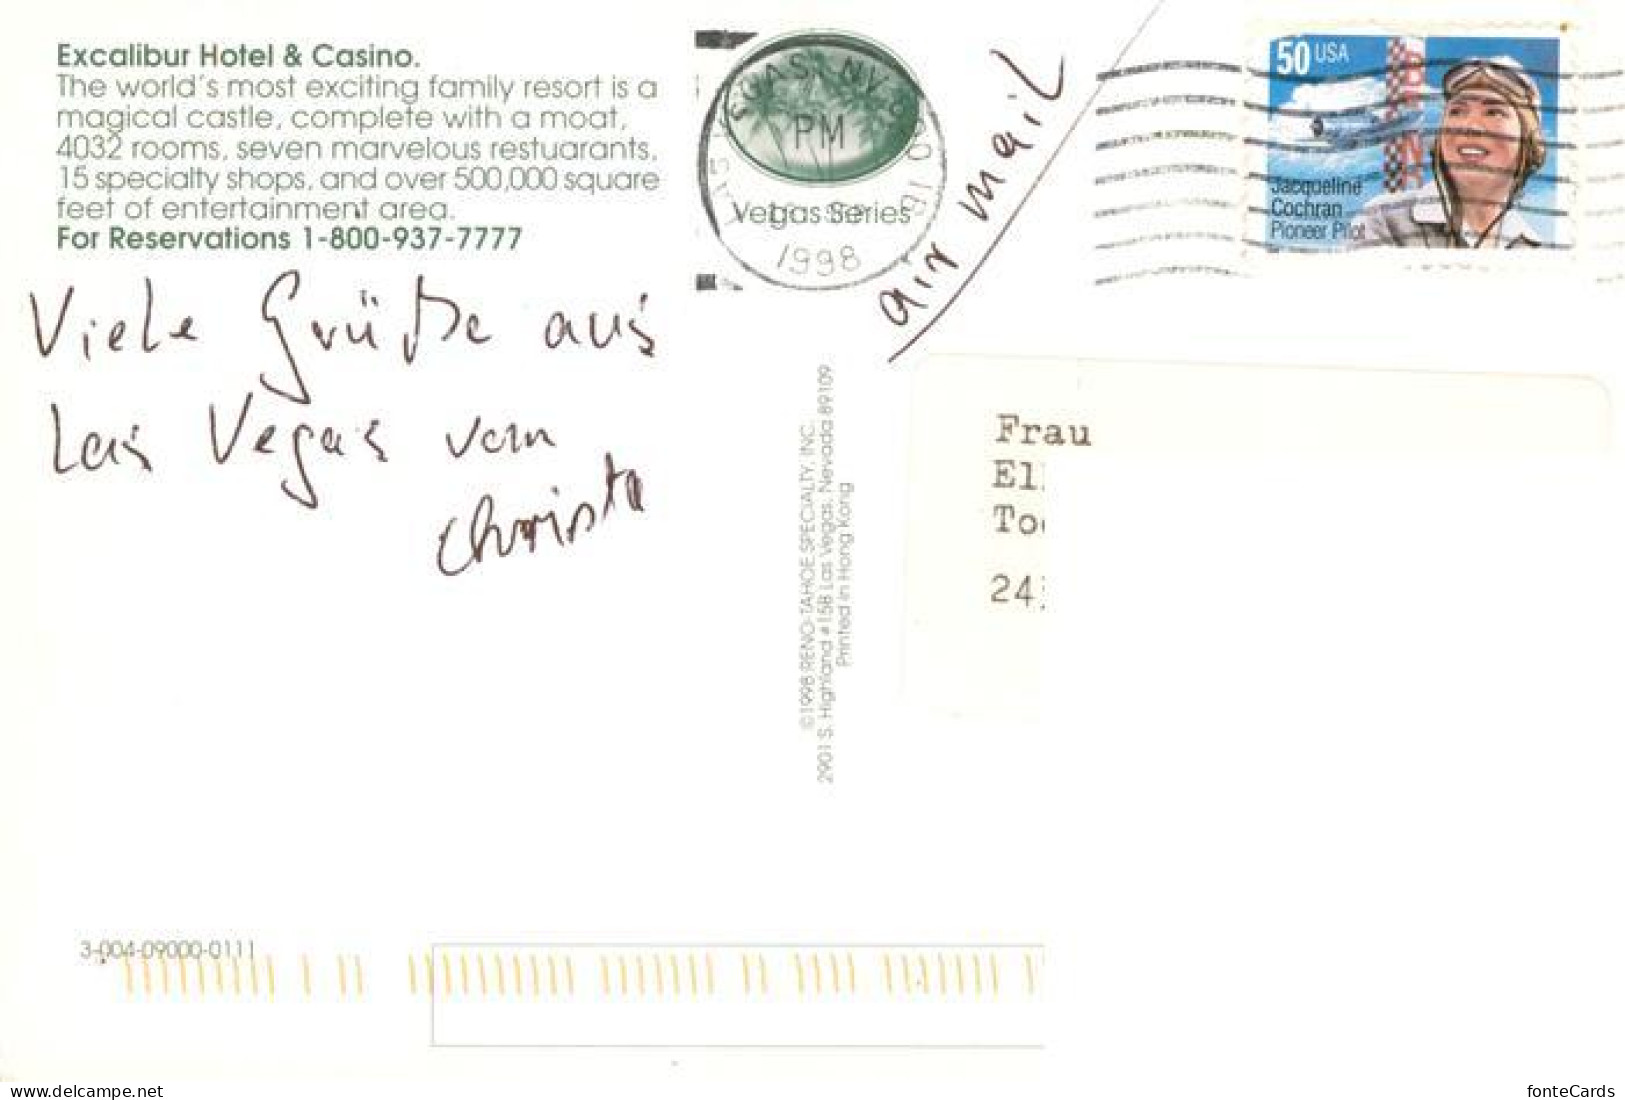 Excalibur Hotel & Casino.
The world's most exciting family resort is a
magical castle, complete with a moat,
4032 rooms, seven marvelous restuarants,
15 specialty shops, and over 500,000 square
feet of entertainment area.
For Reservations 1-800-937-7777
Viele Grüße aus
Las Vegas von
Christa
LAS VEGAS, NV
PM
Vegas Series
1998
air mail
50 USA
Jacqueline
Cochran
Pioneer Pilot
©1998 RENO-TAHOE SPECIALTY, INC.
2901 S. Highland #15B Las Vegas, Nevada 89109
Printed in Hong Kong
Frau
El
To
24
3-004-09000-0111
www.delcampe.net
fonteCards